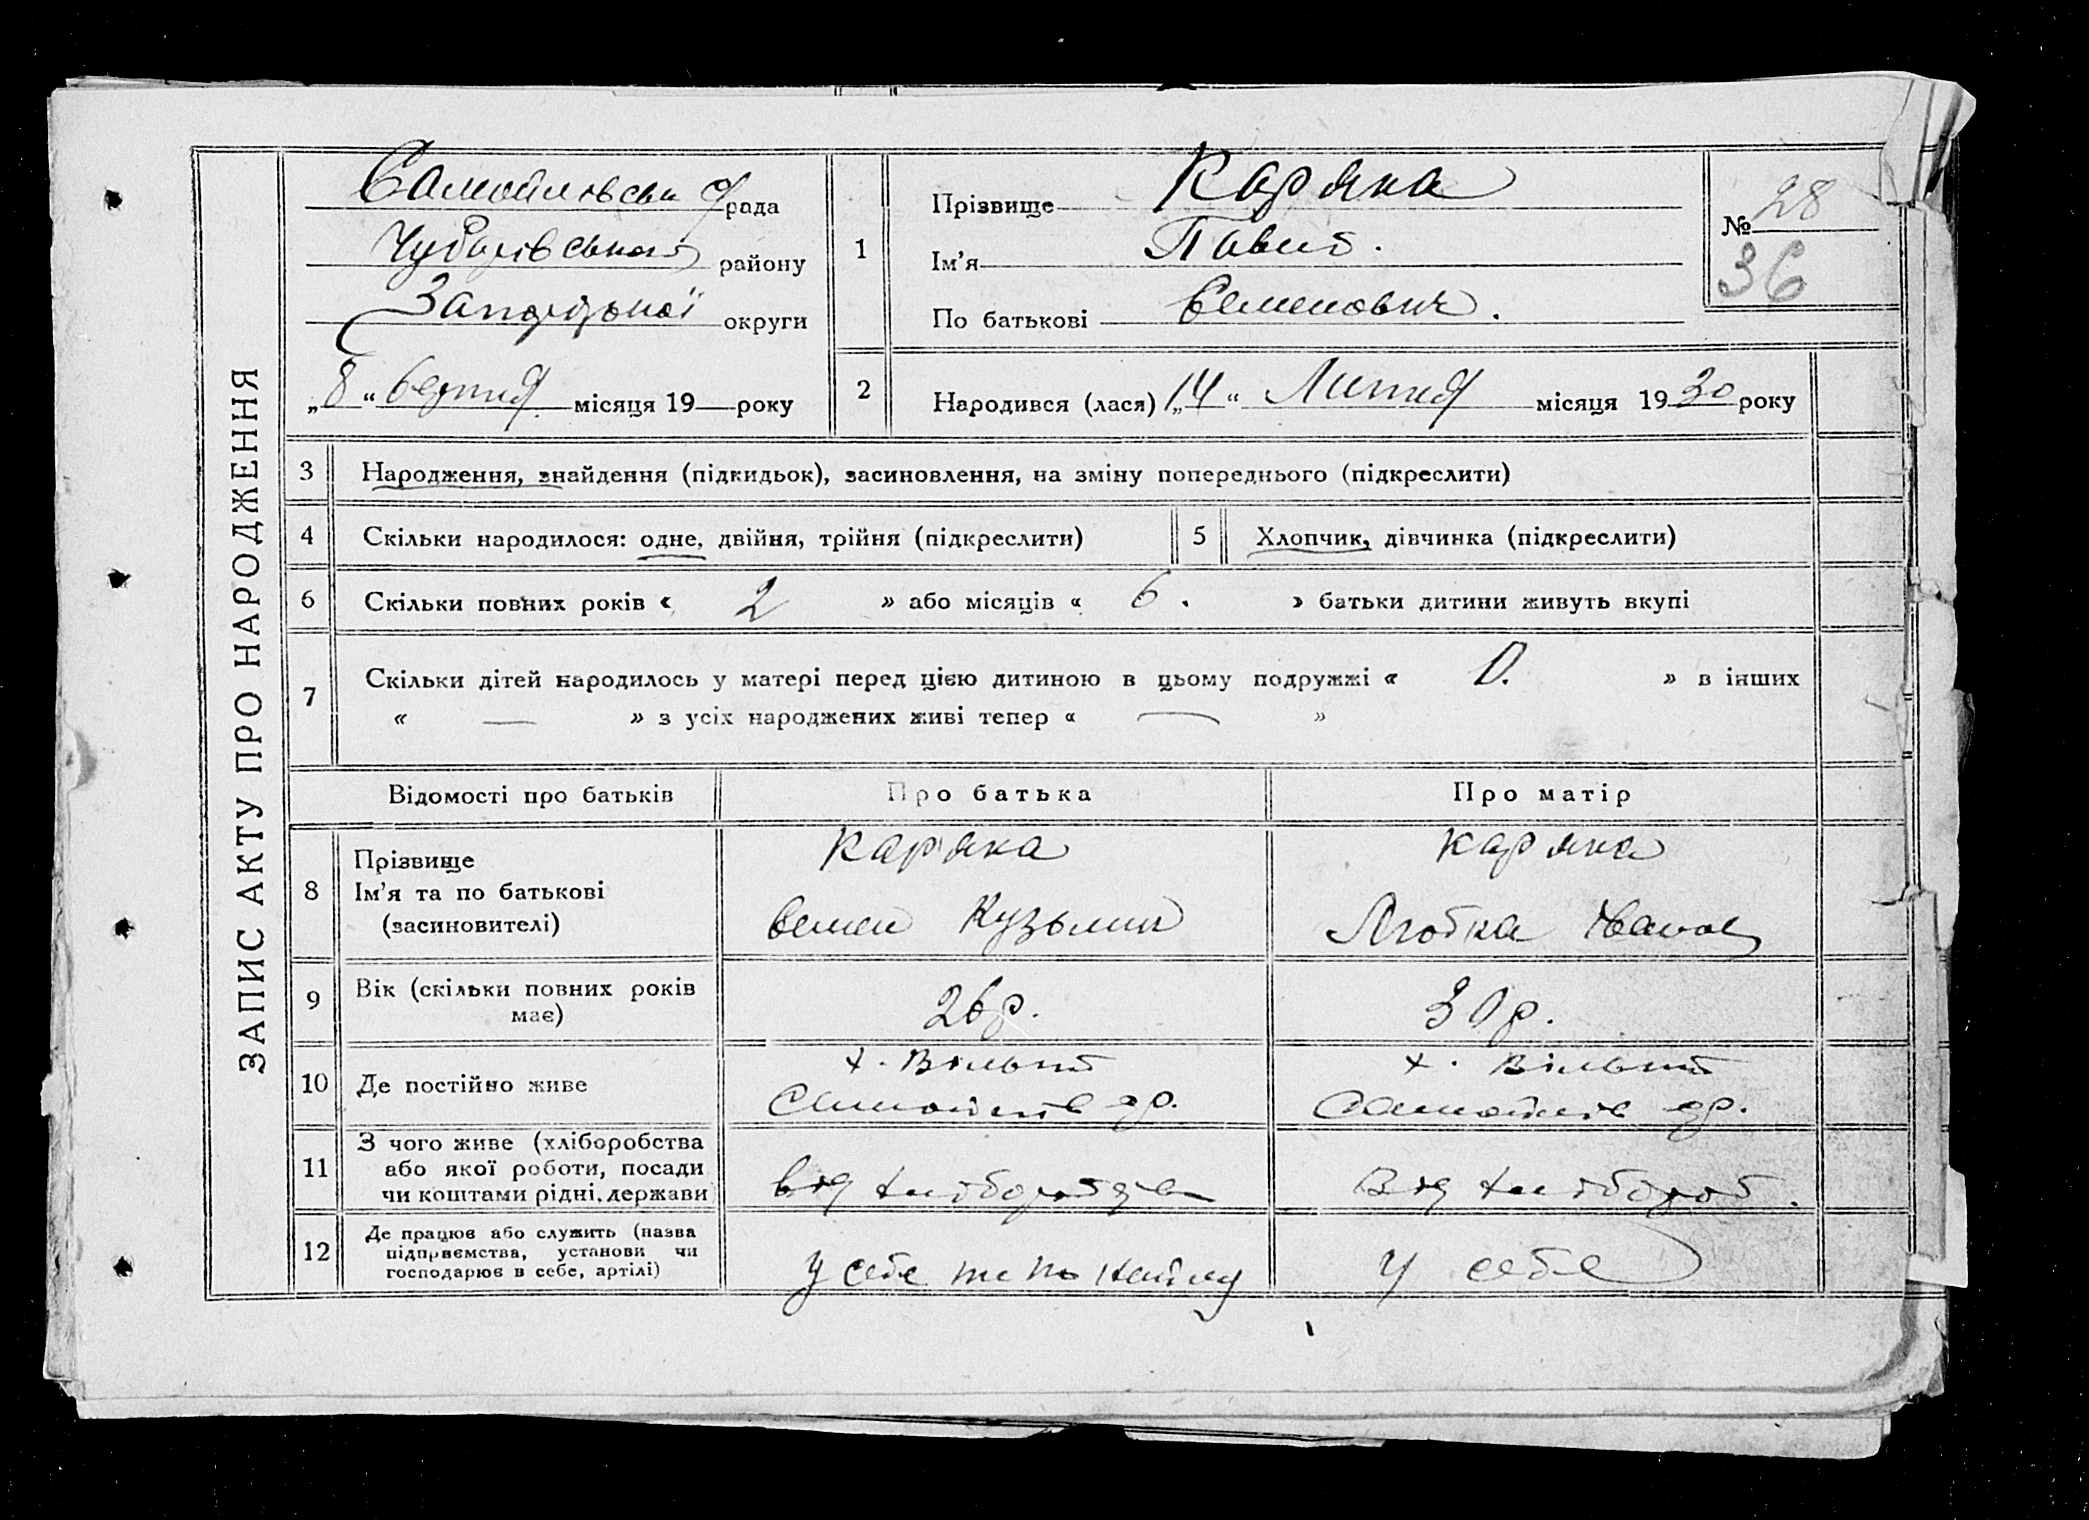 ЗАПИС АКТУ ПРО НАРОДЖЕННЯ
Самойлівська с/рада
Чубарівського району
Запорізької округи
„8“ березня місяця 19 року
1
Прізвище Каряка
Ім'я Павло.
По батькові Семенович.
№ 28
36
2
Народився (лася) „14“ Лютня місяця 1930 року
3 Народження, знайдення (підкидьок), засиновлення, на зміну попереднього (підкреслити)
4 Скільки народилося: одне, двійня, трійня (підкреслити) 5 Хлопчик, дівчинка (підкреслити)
6 Скільки повних років « 2 » або місяців « 6. » батьки дитини живуть вкупі
7 Скільки дітей народилось у матері перед цією дитиною в цьому подружжі « 0. » в інших
« — » з усіх народжених живі тепер « — »
Відомості про батьків Про батька Про матір
8 Прізвище
Ім'я та по батькові
(засиновителі)
Каряка
Семен Кузьмич
Каряка
Любка Іванов
9 Вік (скільки повних років має)
26 р.
30 р.
10 Де постійно живе
х. Вільний
Самойлів с р.
х. Вільний
Самойлів с р.
11 З чого живе (хліборобства
або якої роботи, посади
чи коштами рідні, держави
від хліборобства
Від хлібороб.
12 Де працює або служить (назва
підприємства, установи чи
господарює в себе, артілі)
у себе та по найму
у себе